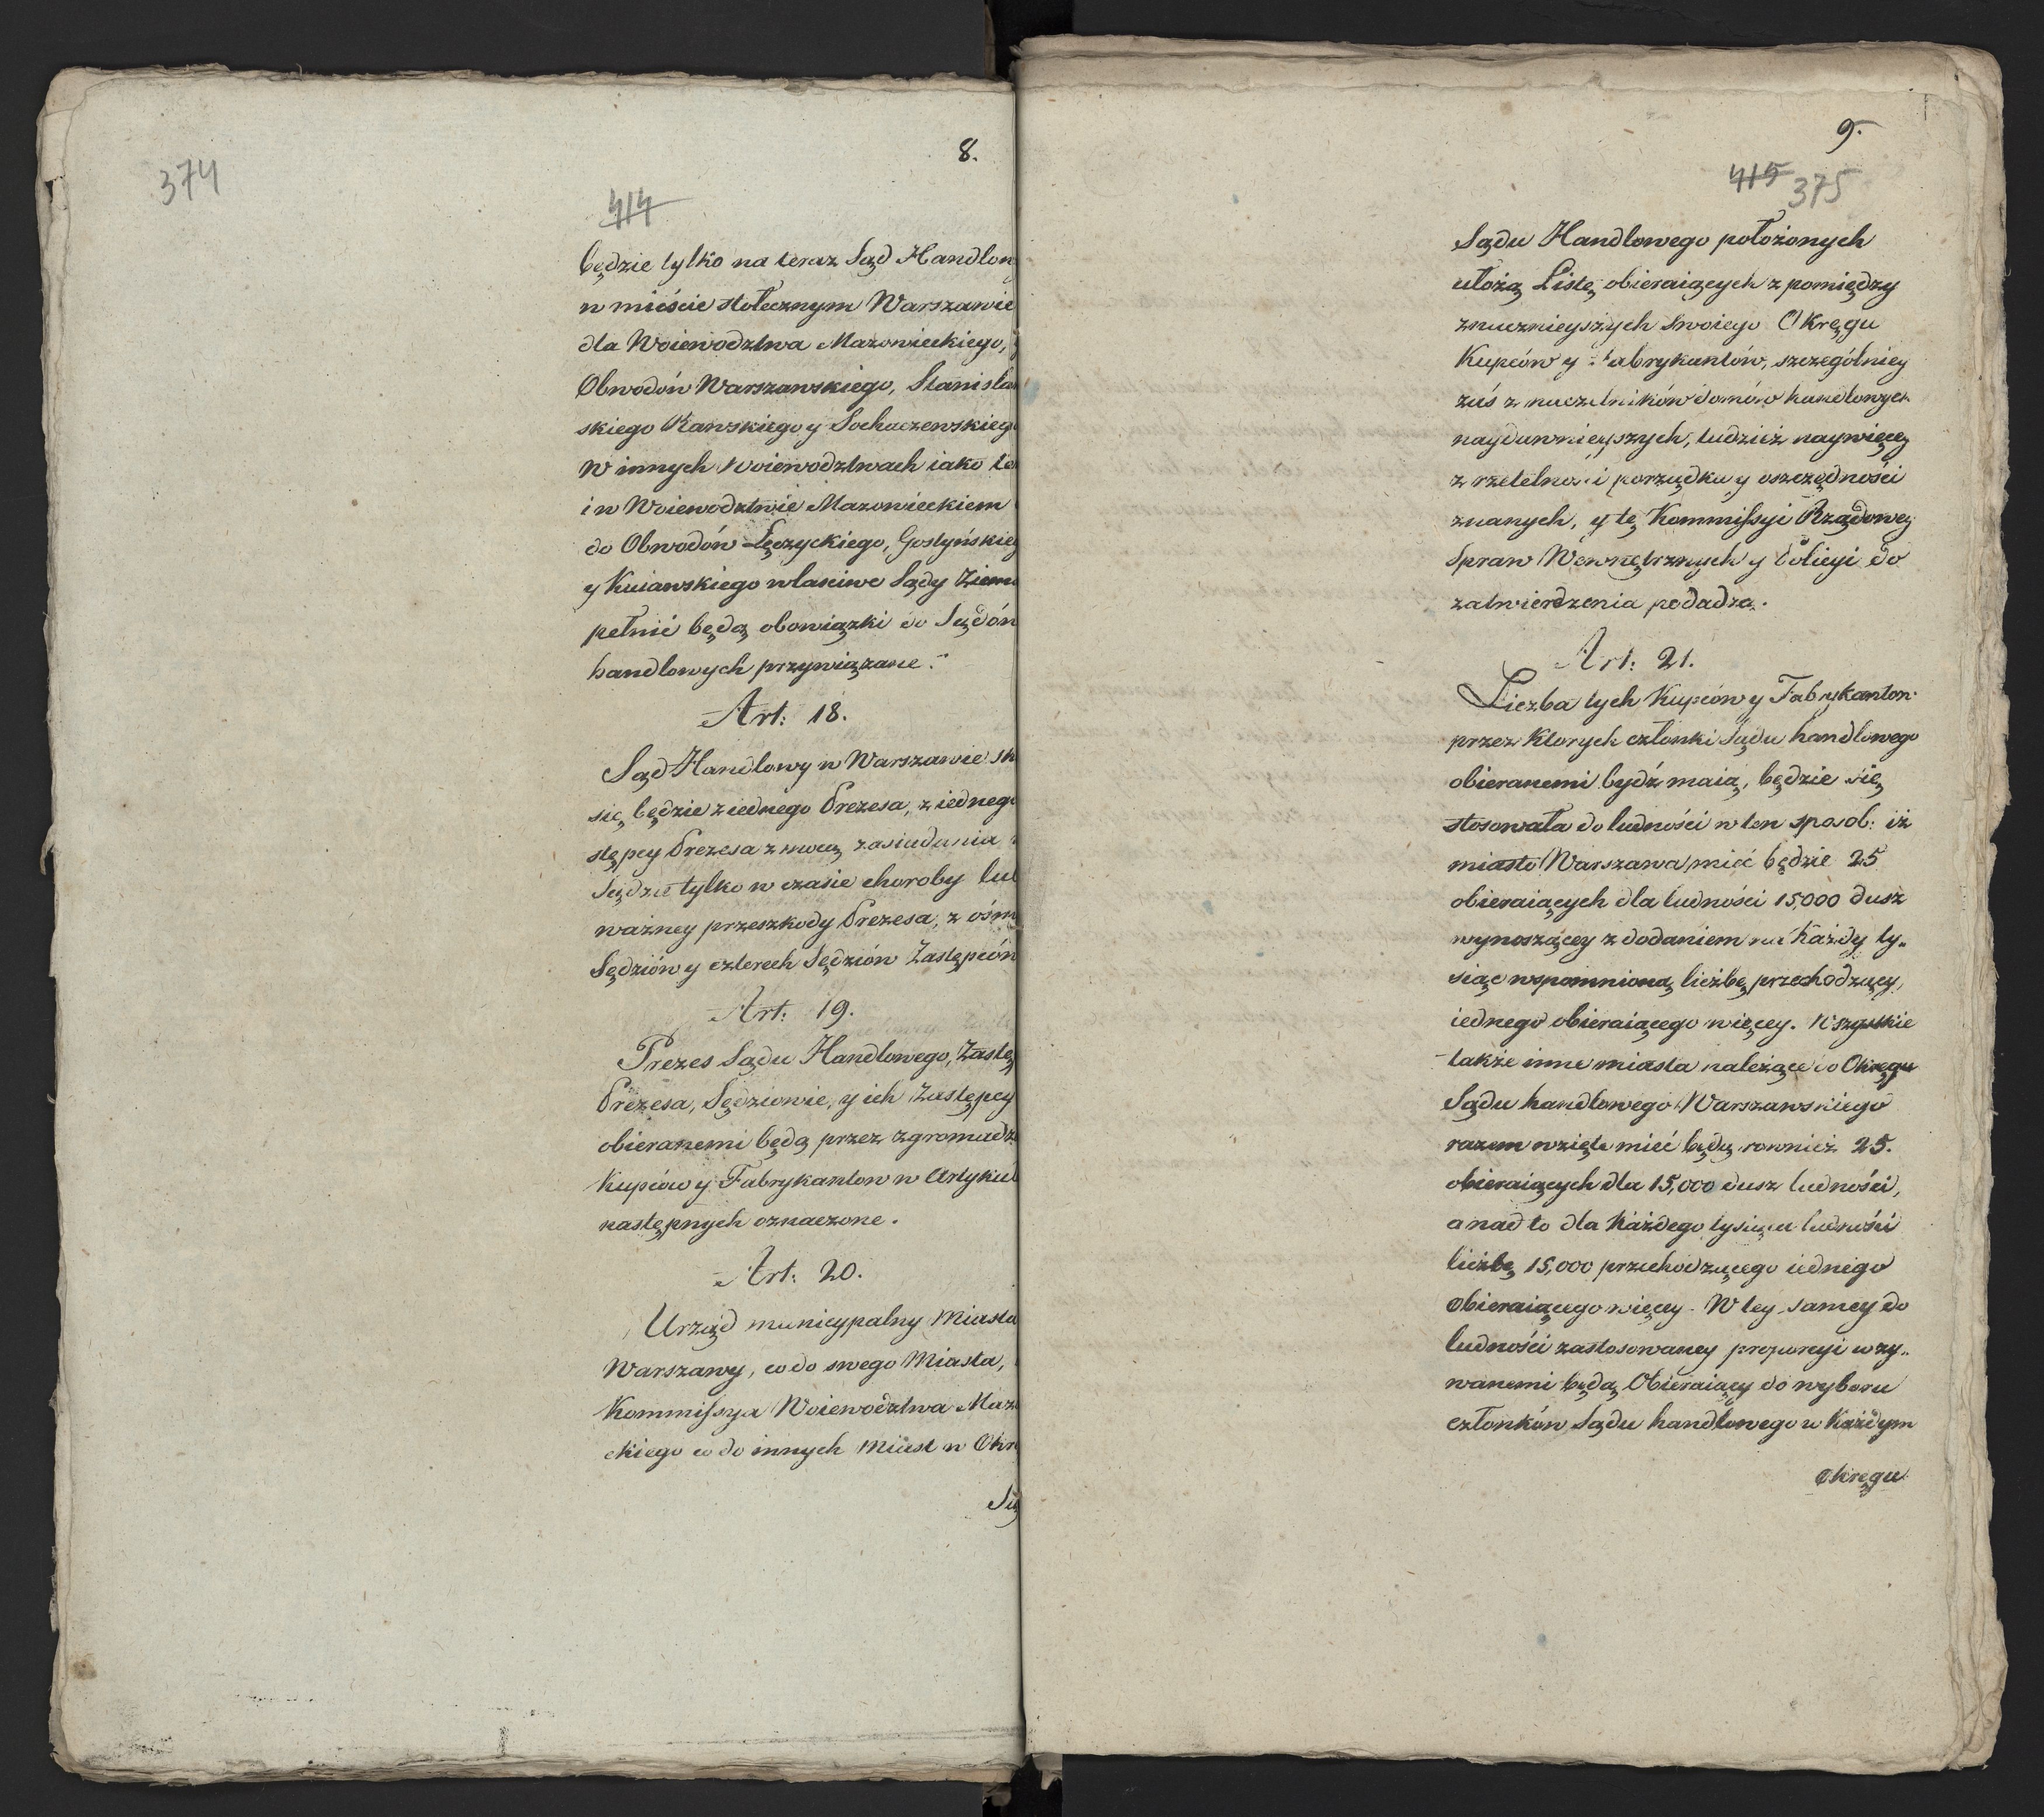 8.
374
414
będzie tylko na teraz Sąd Handlow
w mieście stołecznym Warszawie
dla Woiewodztwa Mazowieckiego,
Obwodów Warszawskiego, Stanisła
skiego Rawskiego y Sochaczewskieg
W innych Woiewodztwach iako te
i w Woiewodztwie Mazowieckiem
do Obwodów Łęczyckiego, Gostyńskieg
y Kuiawskiego własciwe Sądy Ziem
pełnić będą obowiązki do Sądów
handlowych przywiązane.
Art: 18.
Sąd Handlowy w Warszawie sk
się będzie z iednego Prezesa, z iedneg
stępcy Prezesa z mocą zasiadania
Sądzie tylko w czasie choroby lub
ważney przeszkody Prezesa, z ośm
Sędziów y czterech Sędziów Zastępców
Art: 19.
Prezes Sądu Handlowego, Zastę
Prezesa, Sędziowie, y ich Zastępcy
obieranemi będą przez zgromadz
Kupców y Fabrykantow w Artykuł
następnych oznaczone.
Art: 20.
Urząd municypalny Miasta
Warszawy, co do swego Miasta,
Kommissya Woiewodztwa Mazo
ckiego co do innych Miast w Okr
Są
9.
415 375
Sądu Handlowego położonych
ułożą Listę obieraiących z pomiędzy
znacznieyszych swoiego Okręgu
Kupców y Fabrykantów, szczególniey
zaś z naczelników domów handlowych
naydawnieyszych, tudzież naywięcey
z rzetelności porządku y oszczędności
znanych, y tę Kommissyi Rządowey
Spraw Wewnętrznych y Policyi do
zatwierdzenia podadzą.
Art: 21.
Liczba tych Kupców y Fabrykantow
przez ktorych członki Sądu handlowego
obieranemi bydź maią, będzie się
stosowała do ludności w ten sposob: iż
miasto Warszawa mieć będzie 25
obieraiących dla ludności 15,000 dusz
wynoszącey z dodaniem na każdy ty„
siąc wspomnioną liczbę przechodzący,
iednego obieraiącego więcey. Wszystkie
także inne miasta należące do Okręgu
Sądu handlowego Warszawskiego
razem wzięte mieć będą rownież 25.
obieraiących dla 15,000 dusz ludności,
a nad to dla każdego tysiąca ludności
liczbę 15,000 przechodzącego iednego
obieraiącego więcey. W tey samey do
ludności zastosowaney proporcyi wzy„
wanemi będą Obieraiący do wyboru
członków Sądu handlowego w każdym
Okręgu